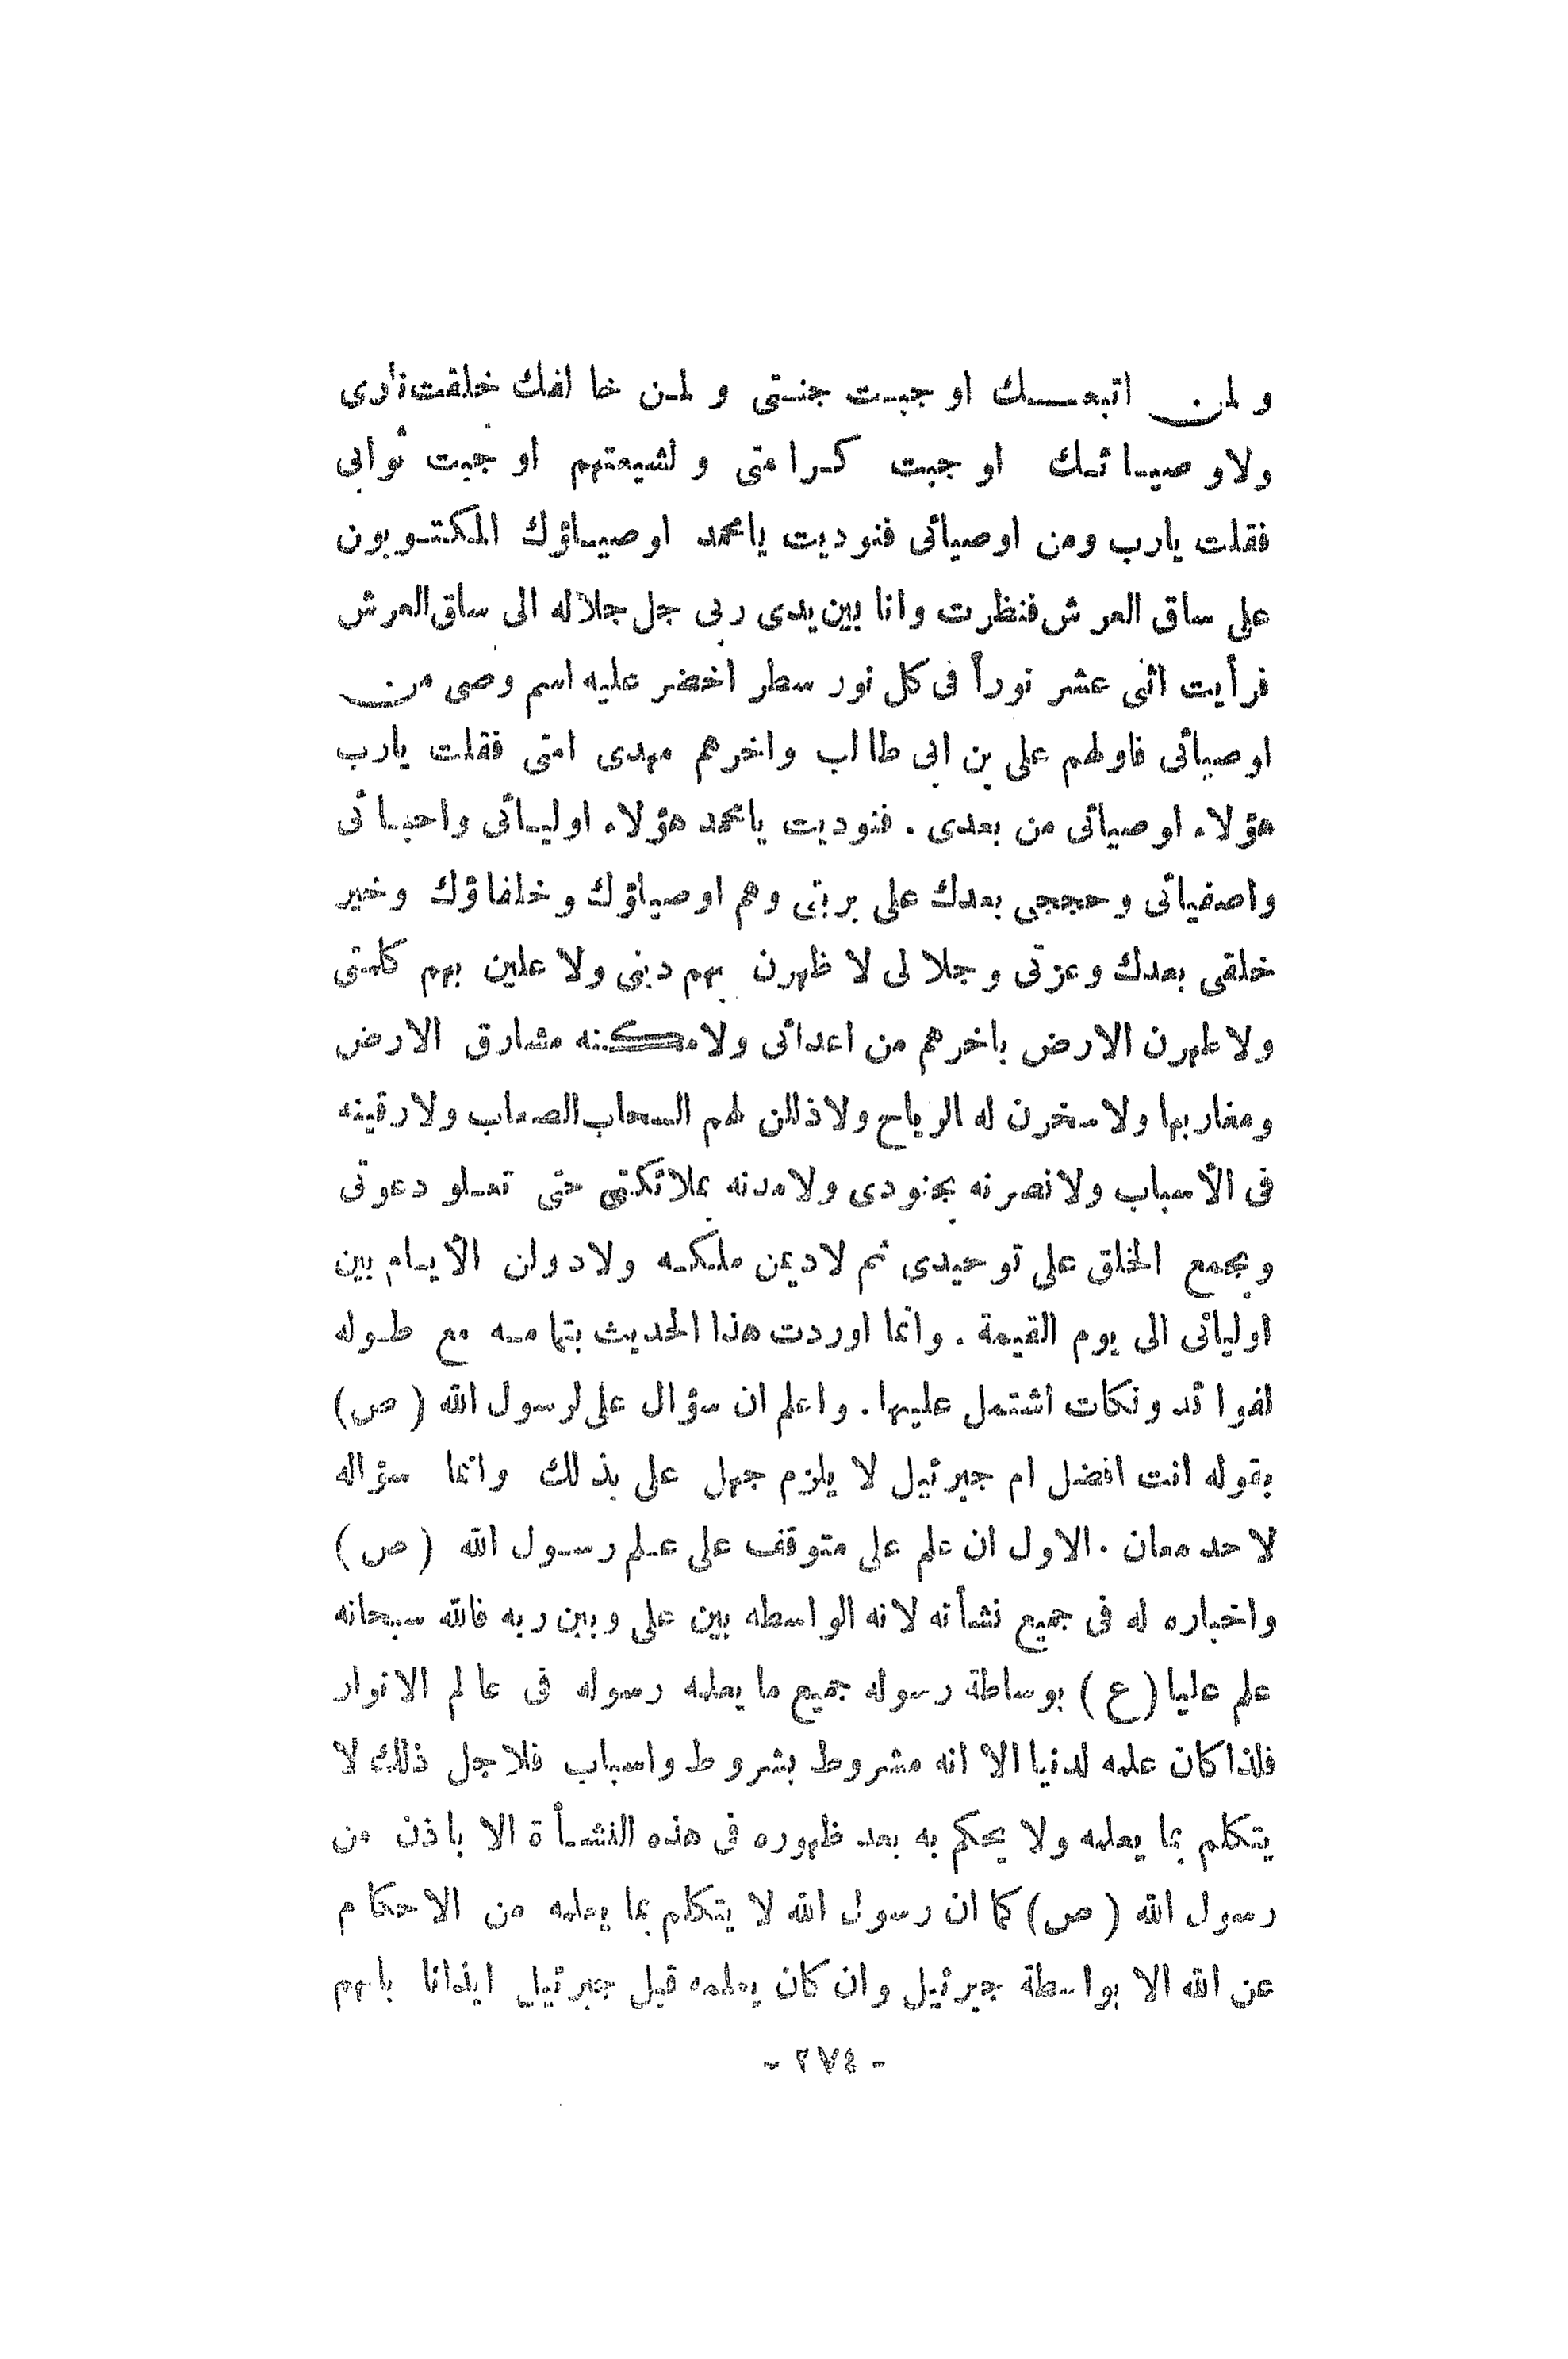 و لمن اتبعك اوجبت جنتى و لمن خالفك خلقت نارى
ولاوصيائك اوجبت كرامتى و لشيعتهم اوجبت ثوابى
فقلت يارب ومن اوصيائى فنوديت يامحمد اوصياؤك المكتوبون
على ساق العرش فنظرت وانا بين يدى ربى جل جلاله الى ساق العرش
فرأيت اثنى عشر نوراً فى كل نور سطر اخضر عليه اسم وصى من
اوصيائى فاولهم على بن ابى طالب واخرهم مهدى امتى فقلت يارب
هؤلاء اوصيائى من بعدى . فنوديت يامحمد هؤلاء اوليائى واحبائى
واصفيائى وحججى بعدك على بريتى وهم اوصياؤك وخلفاؤك وخير
خلقى بعدك وعزتى وجلالى لاظهرن بهم دينى ولاعلين بهم كلمتى
ولاطهرن الارض باخرهم من اعدائى ولامكننه مشارق الارض
ومغاربها ولاسخرن له الرياح ولاذللن لهم السحاب الصعاب ولارقينه
فى الأسباب ولانصرنه بجنودى ولامدنه بملائكتى حتى تعلو دعوتى
ويجمع الخلق على توحيدى ثم لاديمن ملكه ولادولن الأيام بين
اوليائى الى يوم القيمة . وانما اوردت هذا الحديث بتمامه مع طوله
لفوائد ونكات اشتمل عليها . واعلم ان سؤال على لرسول الله (ص)
بقوله انت افضل ام جبرئيل لا يلزم جهل على بذلك وانما سؤاله
لاحد معان . الاول ان علم على متوقف على علم رسول الله (ص)
واخباره له فى جميع نشأته لانه الواسطه بين على وبين ربه فالله سبحانه
علم عليا (ع) بوساطة رسوله جميع ما يعلمه رسوله فى عالم الانوار
فلذا كان علمه لدنيا الا انه مشروط بشروط واسباب فلاجل ذلك لا
يتكلم بما يعلمه ولا يحكم به بعد ظهوره فى هذه النشأة الا باذن من
رسول الله (ص) كما ان رسول الله لا يتكلم بما يعلمه من الاحكام
عن الله الا بواسطة جبرئيل وان كان يعلمه قبل جبرئيل ايذانا بانهم
- ٢٧٤ -